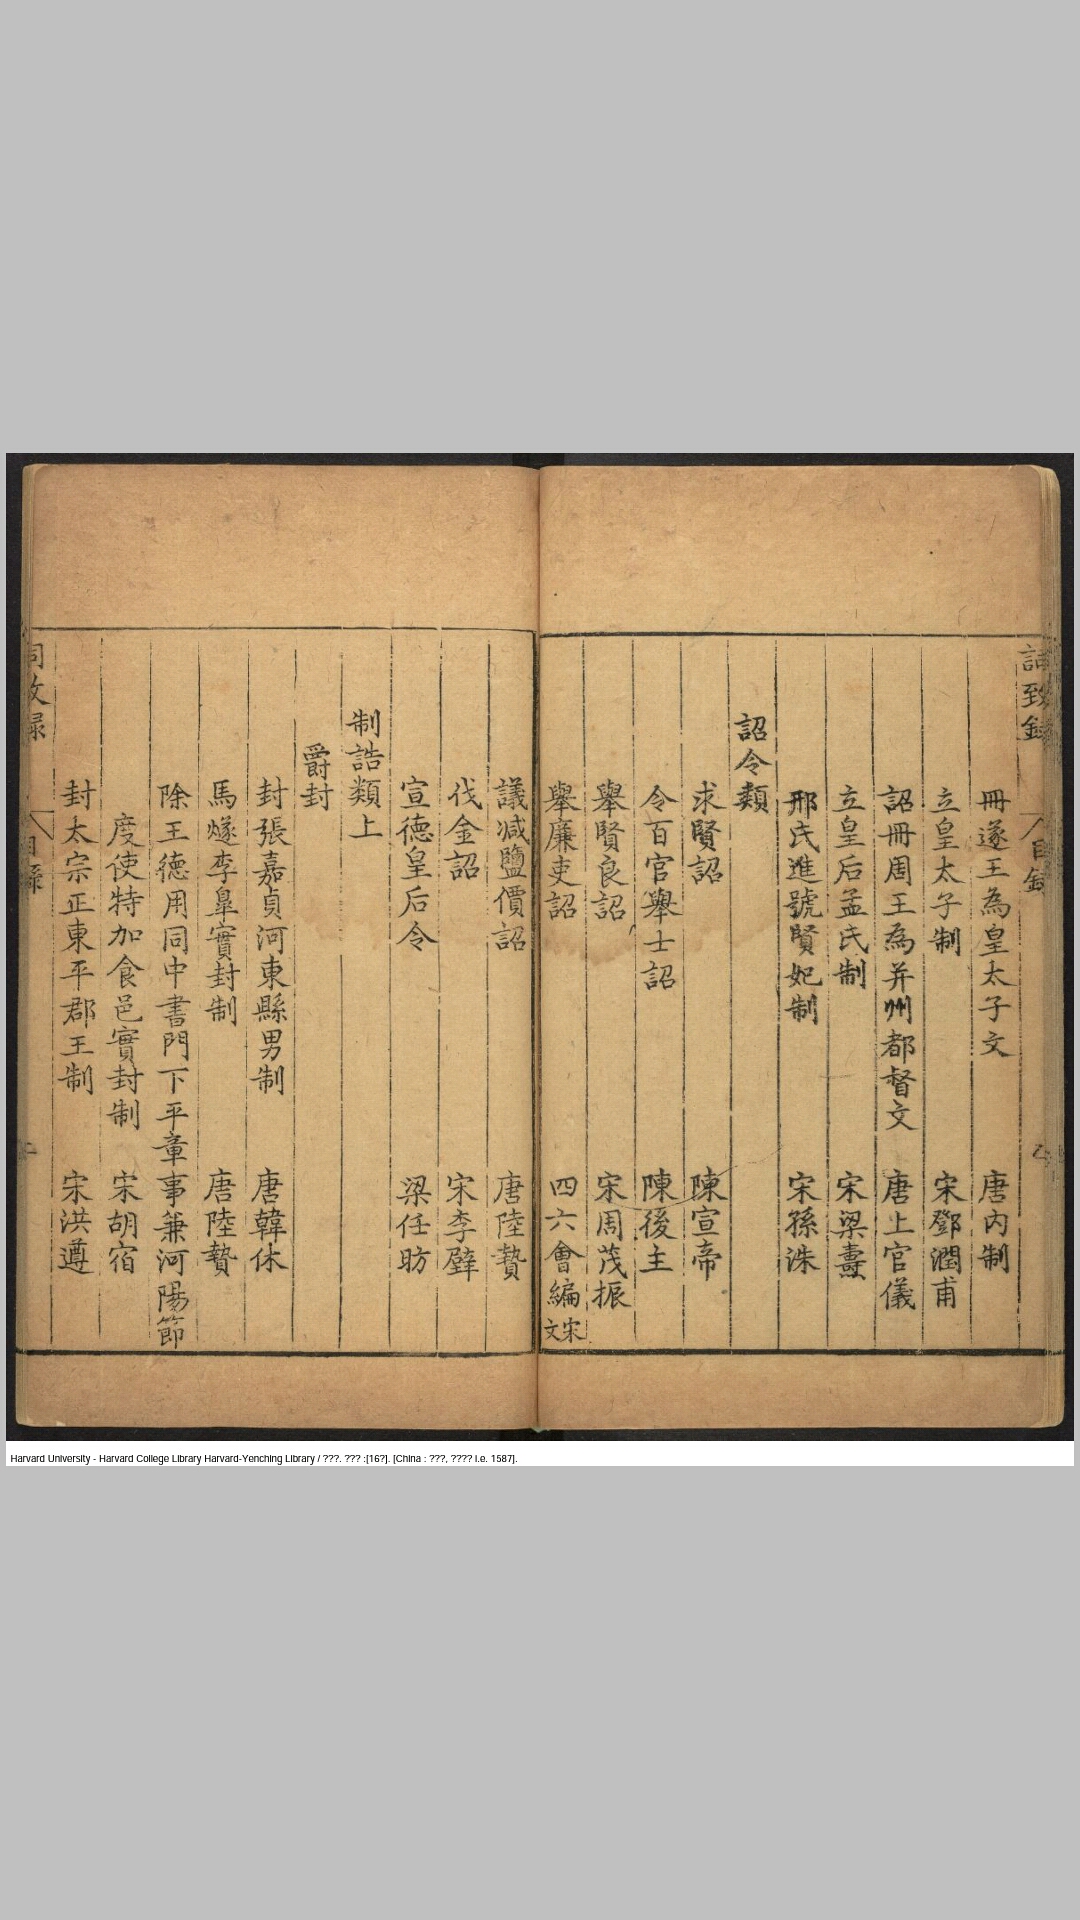 詞致錄
目錄
冊遂王為皇太子文　唐內制
立皇太子制　宋鄧潤甫
詔冊周王為并州都督文　唐上官儀
立皇后孟氏制　宋梁燾
邢氏進號賢妃制　宋孫洙
詔令類
求賢詔　陳宣帝
令百官舉士詔　陳後主
舉賢良詔　宋周茂振
舉廉吏詔　四六會編宋文
議減鹽價詔　唐陸贄
伐金詔　宋李壁
宣德皇后令　梁任昉
制誥類上
爵封
封張嘉貞河東縣男制　唐韓休
馬燧李臯實封制　唐陸贄
除王德用同中書門下平章事兼河陽節
度使特加食邑實封制　宋胡宿
封太宗正東平郡王制　宋洪遵
詞致録
目錄
Harvard University - Harvard College Library Harvard-Yenching Library / ???. ??? :[16?]. [China : ???, ???? i.e. 1587].